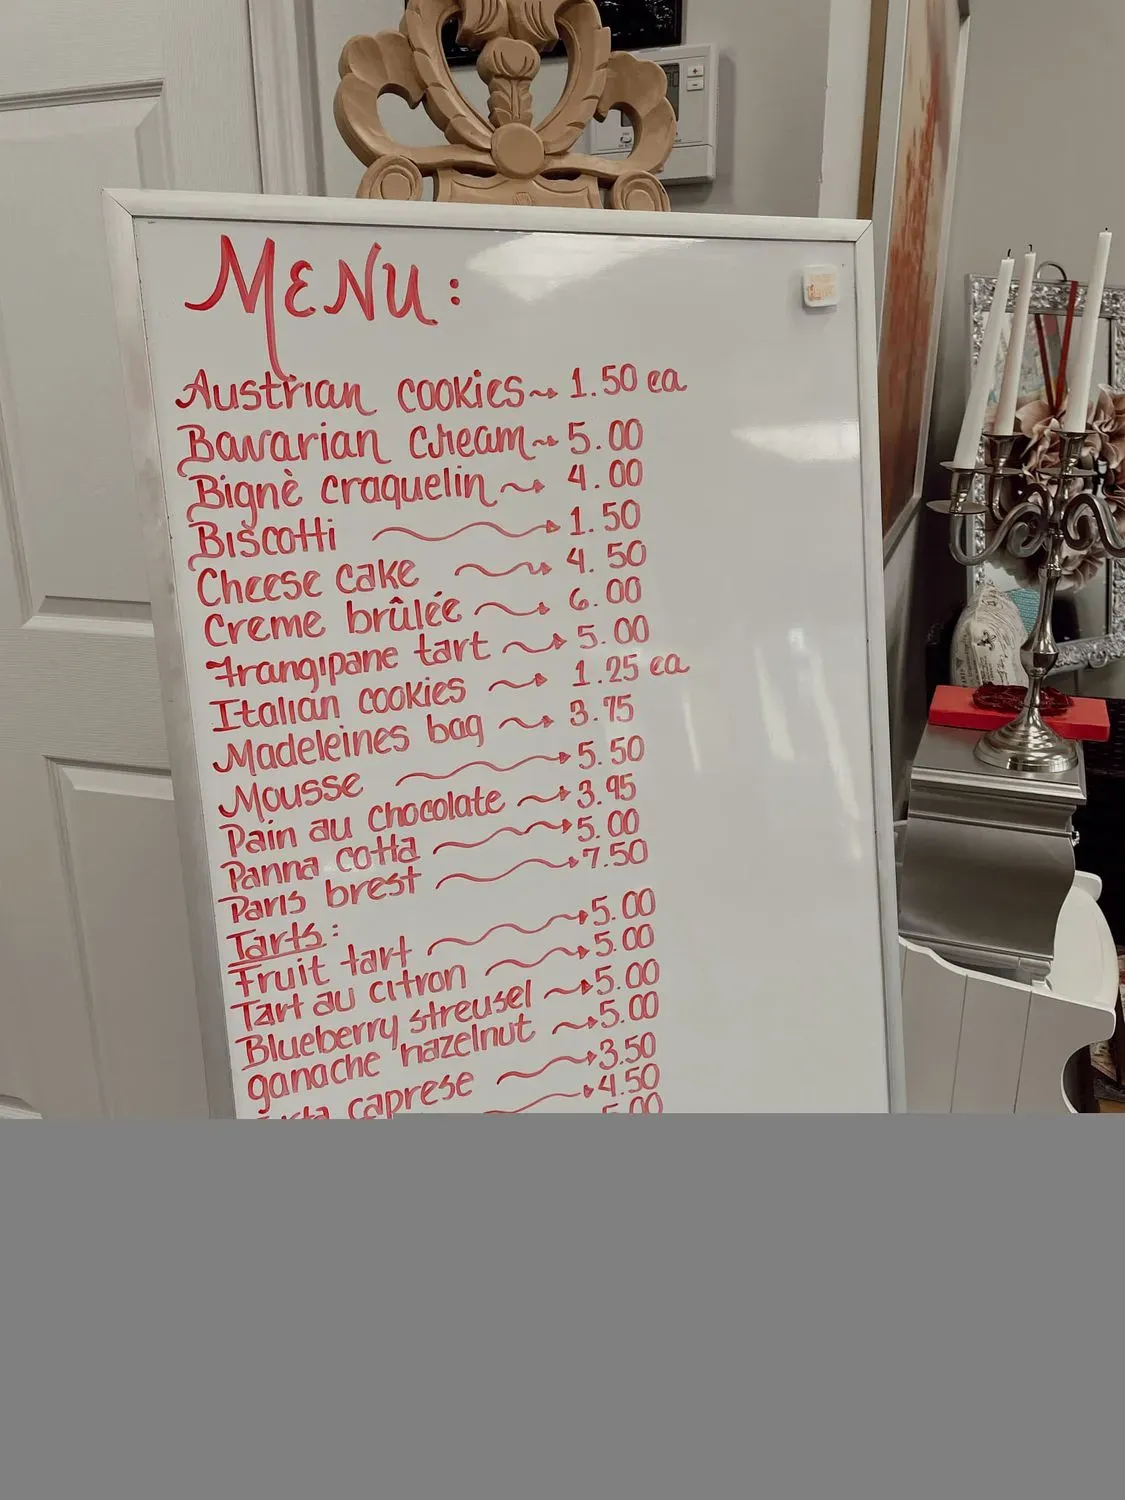 MENU:
Austrian cookies 1.50 ea
Bavarian Cream 5.00
Bignè craquelin 4.00
Biscotti 1.50
Cheese cake 4.50
Creme brûlée 6.00
Frangipane tart 5.00
Italian cookies 1.25 ea
Madeleines bag 3.75
Mousse 5.50
Pain au chocolate 3.95
Panna cotta 5.00
Paris brest 7.50
Tarts:
Fruit tart 5.00
Tart au citron 5.00
Blueberry streusel 5.00
ganache hazelnut 5.00
caprese 3.50
4.50
5.00